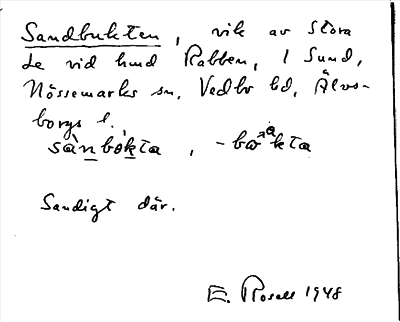 Sandbukten, vik av Stora
Le vid hmd Rabben, 1 Sund,
Nössemarks sn, Vedbo hd, Älvs-
borgs l.
sànbòkta, -bωᵃkta
Sandigt där.
E. Rosell 1948